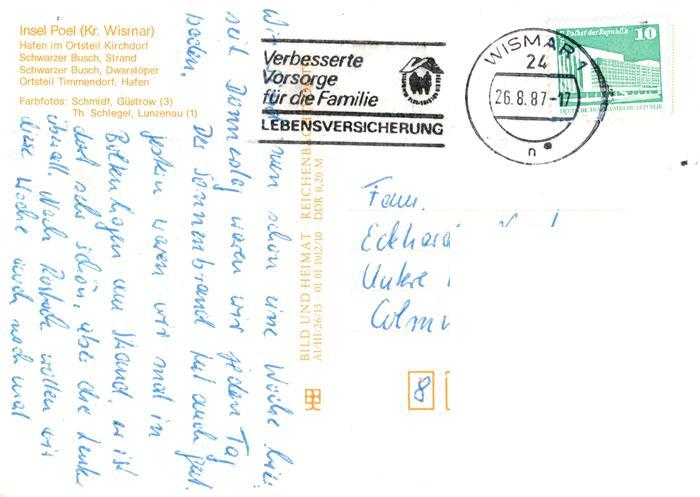 Insel Poel (Kr. Wismar)
Hafen im Ortsteil Kirchdorf
Schwarzer Busch, Strand
Schwarzer Busch, Dwarslöper
Ortsteil Timmendorf, Hafen
Farbfotos: Schmidt, Güstrow (3)
Th. Schlegel, Lunzenau (1)
Verbesserte
Vorsorge
für die Familie
LEBENSVERSICHERUNG
WISMAR 1
24
26.8.87-17
n
Palast der Republik 10
DEUTSCHE DEMOKRATISCHE REPUBLIK
Wir nun schon eine Woche hier
seit Donnerstag waren wir jeden Tag
baden. Der Sonnenbrand hat auch gut
gestern waren wir mal in
Boltenhagen am Strand, er ist
dort sehr schön, aber die Leute
überall. Nach Rostock wollen wir
diese Woche auch noch mal
BILD UND HEIMAT · REICHENBACH
A1/III/26/13 · 01 01 1012/10 · DDR 0,20 M
Fam.
Eckhard
Untere
8